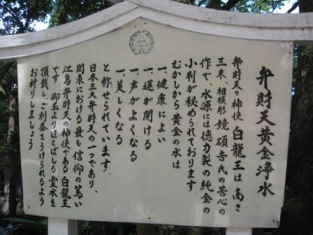 弁財天黄金浄水
弁財天の神使 白龍王は 高さ
三米 相模彫 鐘碩吾氏の苦心の
作で、水源には徳力製の純金の
小判が秘められております
むかしから黄金の水は
一、健康によい
一、運が開ける
一、声がよくなる
一、美しくなる
と称せられています。
日本三大弁財天の一つであり、
関東における最も信仰の篤い
江島弁財天の神使である 白龍王
の よりほとばしる霊水を
頂戴し ご利益をうけられるよう
お祈りしましょう